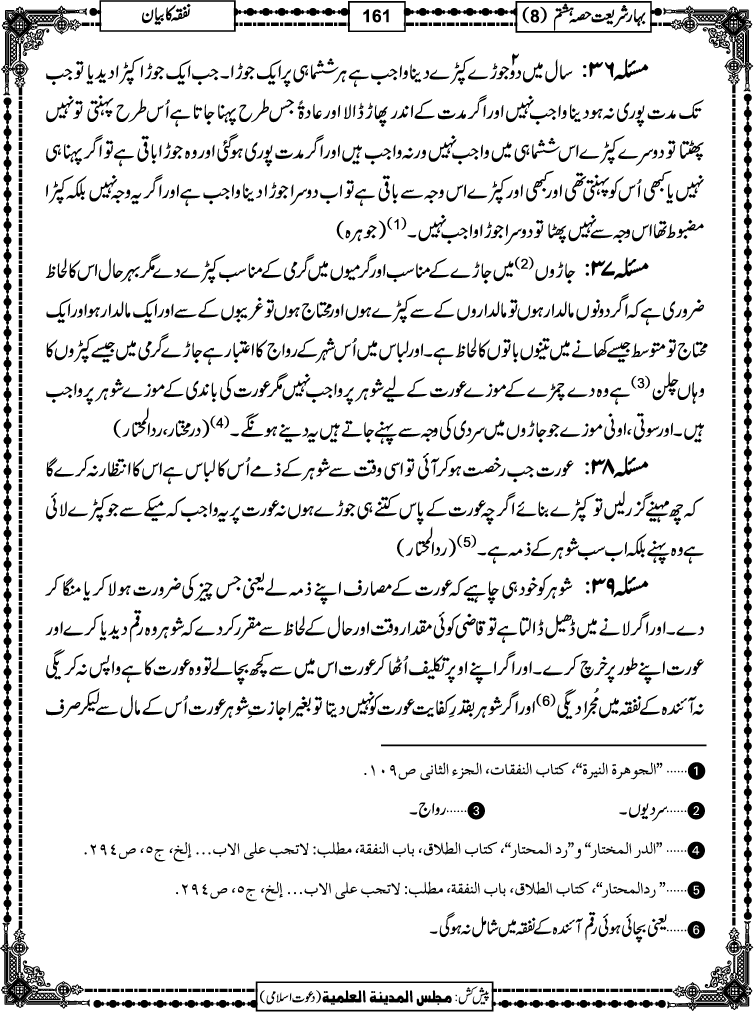 بہار شریعت حصہ ہشتم (8)
161
نفقہ کا بیان
مسئلہ ۳۶: سال میں دو۲ جوڑے کپڑے دینا واجب ہے ہر ششماہی پر ایک جوڑا۔ جب ایک جوڑا کپڑا دیدیا تو جب
تک مدت پوری نہ ہو دینا واجب نہیں اور اگر مدت کے اندر پھاڑ ڈالا اور عادۃً جس طرح پہنا جاتا ہے اُس طرح پہنتی تو نہیں
پھٹتا تو دوسرے کپڑے اس ششماہی میں واجب نہیں ورنہ واجب ہیں اور اگر مدت پوری ہوگئی اور وہ جوڑا باقی ہے تو اگر پہنا ہی
نہیں یا کبھی اُس کو پہنتی تھی اور کبھی اور کپڑے اس وجہ سے باقی ہے تو اب دوسرا جوڑا دینا واجب ہے اور اگر یہ وجہ نہیں بلکہ کپڑا
مضبوط تھا اس وجہ سے نہیں پھٹا تو دوسرا جوڑا واجب نہیں۔(1) (جوہرہ)
مسئلہ ۳۷: جاڑوں(2) میں جاڑے کے مناسب اور گرمیوں میں گرمی کے مناسب کپڑے دے مگر بہرحال اس کا لحاظ
ضروری ہے کہ اگر دونوں مالدار ہوں تو مالداروں کے سے کپڑے ہوں اور محتاج ہوں تو غریبوں کے سے اور ایک مالدار ہو اور ایک
محتاج تو متوسط جیسے کھانے میں تینوں باتوں کا لحاظ ہے۔ اور لباس میں اُس شہر کے رواج کا اعتبار ہے جاڑے گرمی میں جیسے کپڑوں کا
وہاں چلن(3) ہے وہ دے چمڑے کے موزے عورت کے لیے شوہر پر واجب نہیں مگر عورت کی باندی کے موزے شوہر پر واجب
ہیں۔ اور سوتی، اونی موزے جو جاڑوں میں سردی کی وجہ سے پہنے جاتے ہیں یہ دینے ہونگے۔(4) (درمختار، ردالمحتار)
مسئلہ ۳۸: عورت جب رخصت ہو کر آئی تو اسی وقت سے شوہر کے ذمے اُس کا لباس ہے اس کا انتظار نہ کرے گا
کہ چھ مہینے گزر لیں تو کپڑے بنائے اگرچہ عورت کے پاس کتنے ہی جوڑے ہوں نہ عورت پر یہ واجب کہ میکے سے جو کپڑے لائی
ہے وہ پہنے بلکہ اب سب شوہر کے ذمہ ہے۔(5) (ردالمحتار)
مسئلہ ۳۹: شوہر کو خود ہی چاہیے کہ عورت کے مصارف اپنے ذمہ لے یعنی جس چیز کی ضرورت ہو لا کر یا منگا کر
دے۔ اور اگر لانے میں ڈھیل ڈالتا ہے تو قاضی کوئی مقدار وقت اور حال کے لحاظ سے مقرر کردے کہ شوہر وہ رقم دیدیا کرے اور
عورت اپنے طور پر خرچ کرے۔ اور اگر اپنے اوپر تکلیف اُٹھا کر عورت اس میں سے کچھ بچالے تو وہ عورت کا ہے واپس نہ کریگی
نہ آئندہ کے نفقہ میں مُجرا دیگی(6) اور اگر شوہر بقدرِ کفایت عورت کو نہیں دیتا تو بغیر اجازتِ شوہر عورت اُس کے مال سے لیکر صرف
1...... ”الجوهرة النيرة“، كتاب النفقات، الجزء الثانی ص١٠٩.
2......سردیوں۔
3......رواج۔
4...... ”الدر المختار“ و”رد المحتار“، كتاب الطلاق، باب النفقة، مطلب: لاتجب على الاب... إلخ، ج٥، ص٢٩٤.
5...... ”ردالمحتار“، كتاب الطلاق، باب النفقة، مطلب: لاتجب على الاب... إلخ، ج٥، ص٢٩٤.
6......یعنی بچائی ہوئی رقم آئندہ کے نفقہ میں شامل نہ ہوگی۔
پیش کش: مجلس المدينة العلمية (دعوت اسلامی)